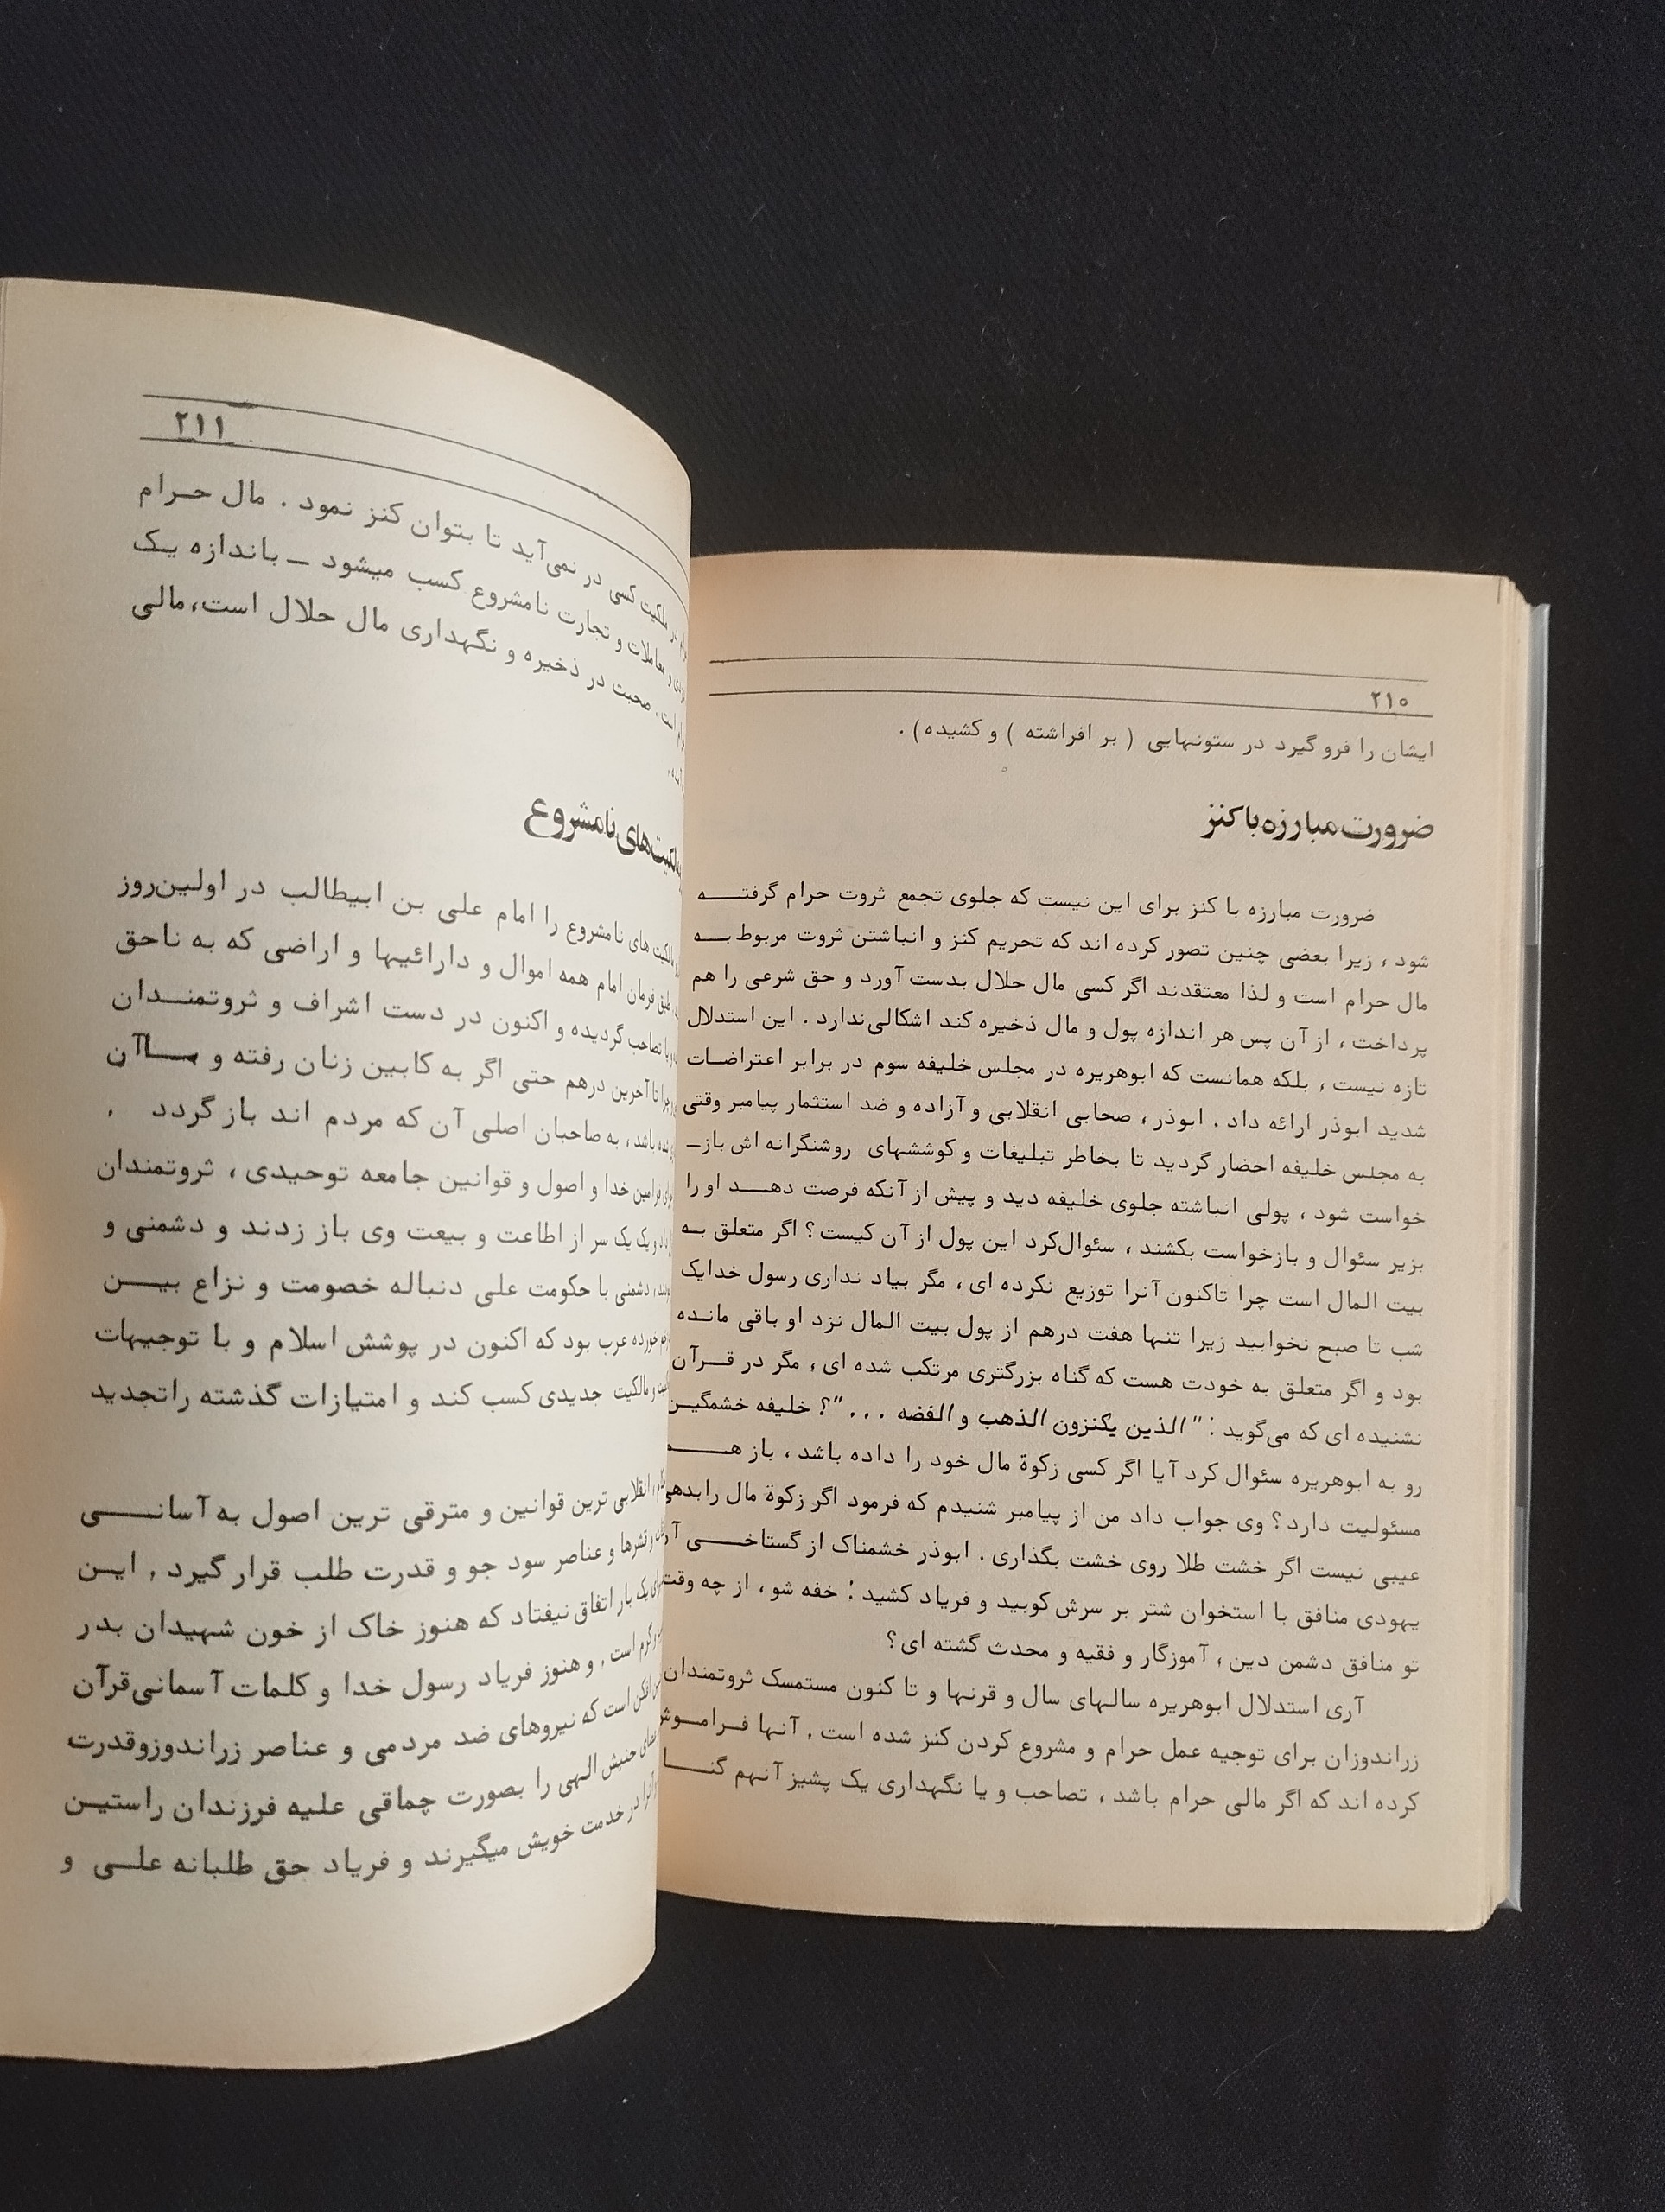 ۲۱۰
ایشان را فرو گیرد در ستونهایی ( بر افراشته ) و کشیده) .
ضرورت مبارزه با کنز
ضرورت مبارزه با کنز برای این نیست که جلوی تجمع ثروت حرام گرفتـــه
شود ، زیرا بعضی چنین تصور کرده اند که تحریم کنز و انباشتن ثروت مربوط بـــه
مال حرام است و لذا معتقدند اگر کسی مال حلال بدست آورد و حق شرعی را هم
پرداخت ، از آن پس هر اندازه پول و مال ذخیره کند اشکالی ندارد . این استدلال
تازه نیست ، بلکه همانست که ابوهریره در مجلس خلیفه سوم در برابر اعتراضات
شدید ابوذر ارائه داد . ابوذر ، صحابی انقلابی و آزاده و ضد استثمار پیامبر وقتی
به مجلس خلیفه احضار گردید تا بخاطر تبلیغات و کوششهای روشنگرانه اش باز_
خواست شود ، پولی انباشته جلوی خلیفه دید و پیش از آنکه فرصت دهـــد او را
بزیر سئوال و بازخواست بکشند ، سئوال کرد این پول از آن کیست ؟ اگر متعلق بـه
بیت المال است چرا تاکنون آنرا توزیع نکرده ای ، مگر بیاد نداری رسول خدا یک
شب تا صبح نخوابید زیرا تنها هفت درهم از پول بیت المال نزد او باقی مانـده
بود و اگر متعلق به خودت هست که گناه بزرگتری مرتکب شده ای ، مگر در قــرآن
نشنیده ای که می‌گوید : " الذین یکنزون الذهب و الفضه . . . " ؟ خلیفه خشمگیـن
رو به ابوهریره سئوال کرد آیا اگر کسی زکوة مال خود را داده باشد ، باز هـــــم
مسئولیت دارد ؟ وی جواب داد من از پیامبر شنیدم که فرمود اگر زکوة مال را بدهی
عیبی نیست اگر خشت طلا روی خشت بگذاری . ابوذر خشمناک از گستاخـــی
یهودی منافق با استخوان شتر بر سرش کوبید و فریاد کشید : خفه شو ، از چه وقت
تو منافق دشمن دین ، آموزگار و فقیه و محدث گشته ای ؟
آری استدلال ابوهریره سالهای سال و قرنها و تا کنون مستمسک ثروتمندان
زراندوزان برای توجیه عمل حرام و مشروع کردن کنز شده است . آنها فـرامـوش
کرده اند که اگر مالی حرام باشد ، تصاحب و یا نگهداری یک پشیز آنهم گنـــا
۲۱۱
ملکیت کسی در نمی‌آید تا بتوان کنز نمود . مال حـرام
معاملات و تجارت نامشروع کسب میشود _ باندازه یـک
است . محبت در ذخیره و نگهداری مال حلال است، مالـی
مالکیت‌های نامشروع
مالکیت های نامشروع را امام علی بن ابیطالب در اولین‌روز
طبق فرمان امام همه اموال و دارائیها و اراضی که به ناحق
تصاحب گردیده و اکنون در دست اشراف و ثروتمنـــدان
تا آخرین درهم حتی اگر به کابین زنان رفته و بـــا آن
باشد ، به صاحبان اصلی آن که مردم اند باز گردد .
فرامین خدا و اصول و قوانین جامعه توحیدی ، ثروتمندان
یک یک سر از اطاعت و بیعت وی باز زدند و دشمنی و
دشمنی با حکومت علی دنباله خصومت و نزاع بیـــن
خورده عرب بود که اکنون در پوشش اسلام و با توجیهات
و مالکیت جدیدی کسب کند و امتیازات گذشته را تجدید
انقلابی ترین قوانین و مترقی ترین اصول به آسانـــی
و قشرها و عناصر سود جو و قدرت طلب قرار گیرد . ایـن
یک بار اتفاق نیفتاد که هنوز خاک از خون شهیدان بدر
گرم است . و هنوز فریاد رسول خدا و کلمات آسمانی قرآن
است که نیروهای ضد مردمی و عناصر زراندوز و قدرت
جنبش الهی را بصورت چماقی علیه فرزندان راستیـن
در خدمت خویش میگیرند و فریاد حق طلبانه علــی و